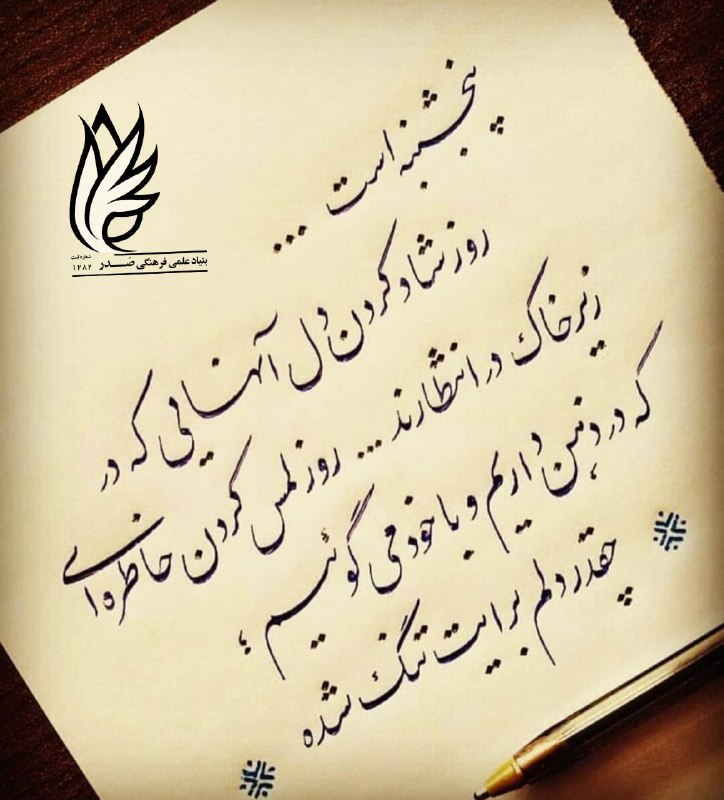 پنجشنبه است ...
روز شاد کردن دل آنهایی که در
زیر خاک در انتظارند ... روز لمس کردن خاطره‌ای
که در ذهن داریم و با خود می گوئیم ؛
چقدر دلم برایت تنگ شده
بنیاد علمی فرهنگی صَدر
شماره ثبت
۱۲۸۲